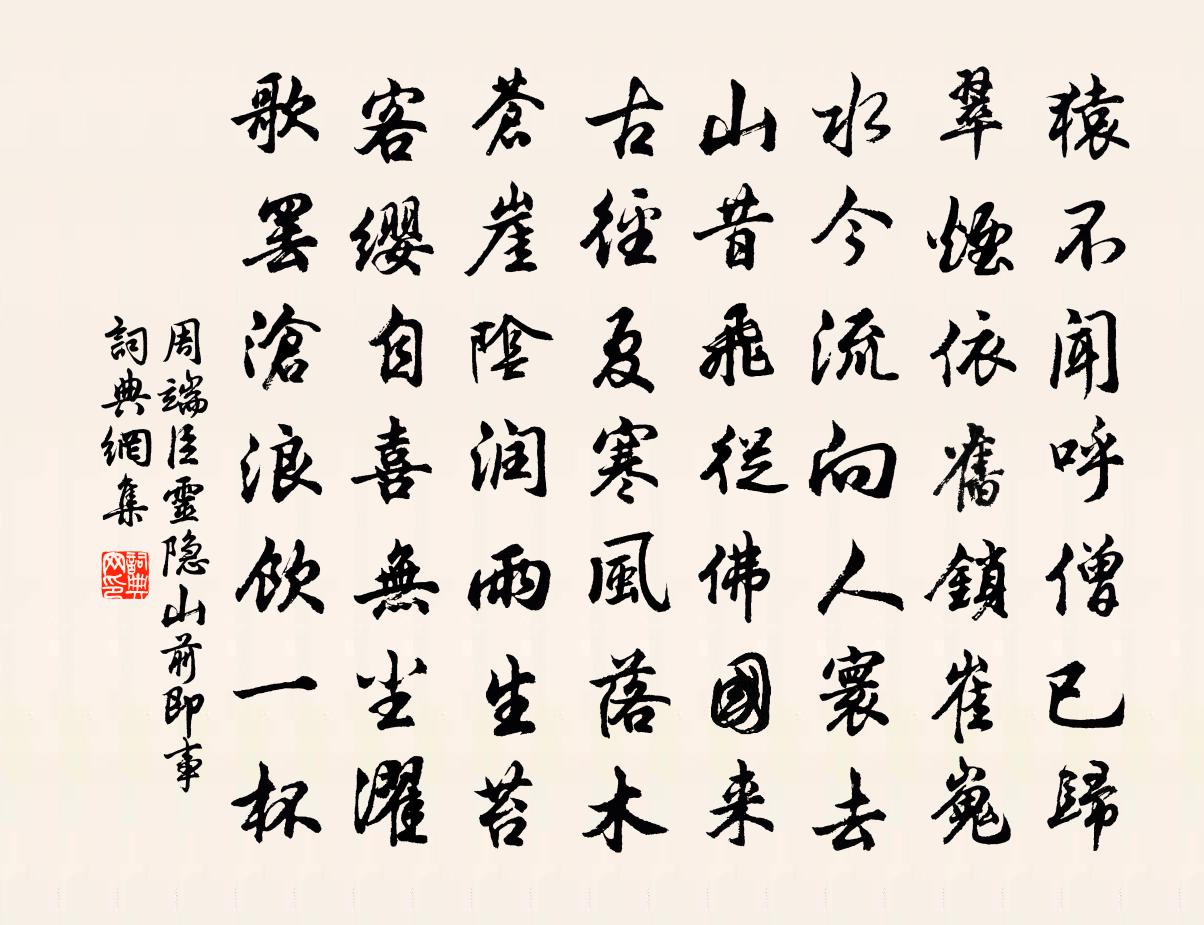 猿不闻呼僧已歸
翠煙依舊鎖崔嵬
水今流向人寰去
山昔飛從佛國来
古徑夏寒風落木
蒼崖陰润雨生苔
客缨自喜無尘濯
歌罢滄浪飲一杯
周端臣靈隐山前即事
詞典網集
詞典网印